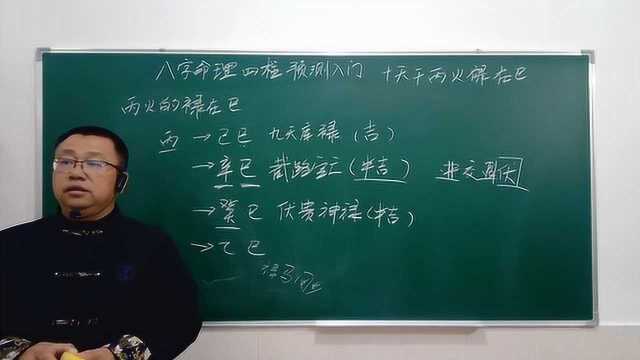 八字命理四柱预测入门 十天干丙火禄在巳
丙火的禄在巳
丙→己巳 九天库禄(吉)
→辛巳 截路空亡(半吉)
→癸巳 伏贵神禄(半吉)
→乙巳
禄马同